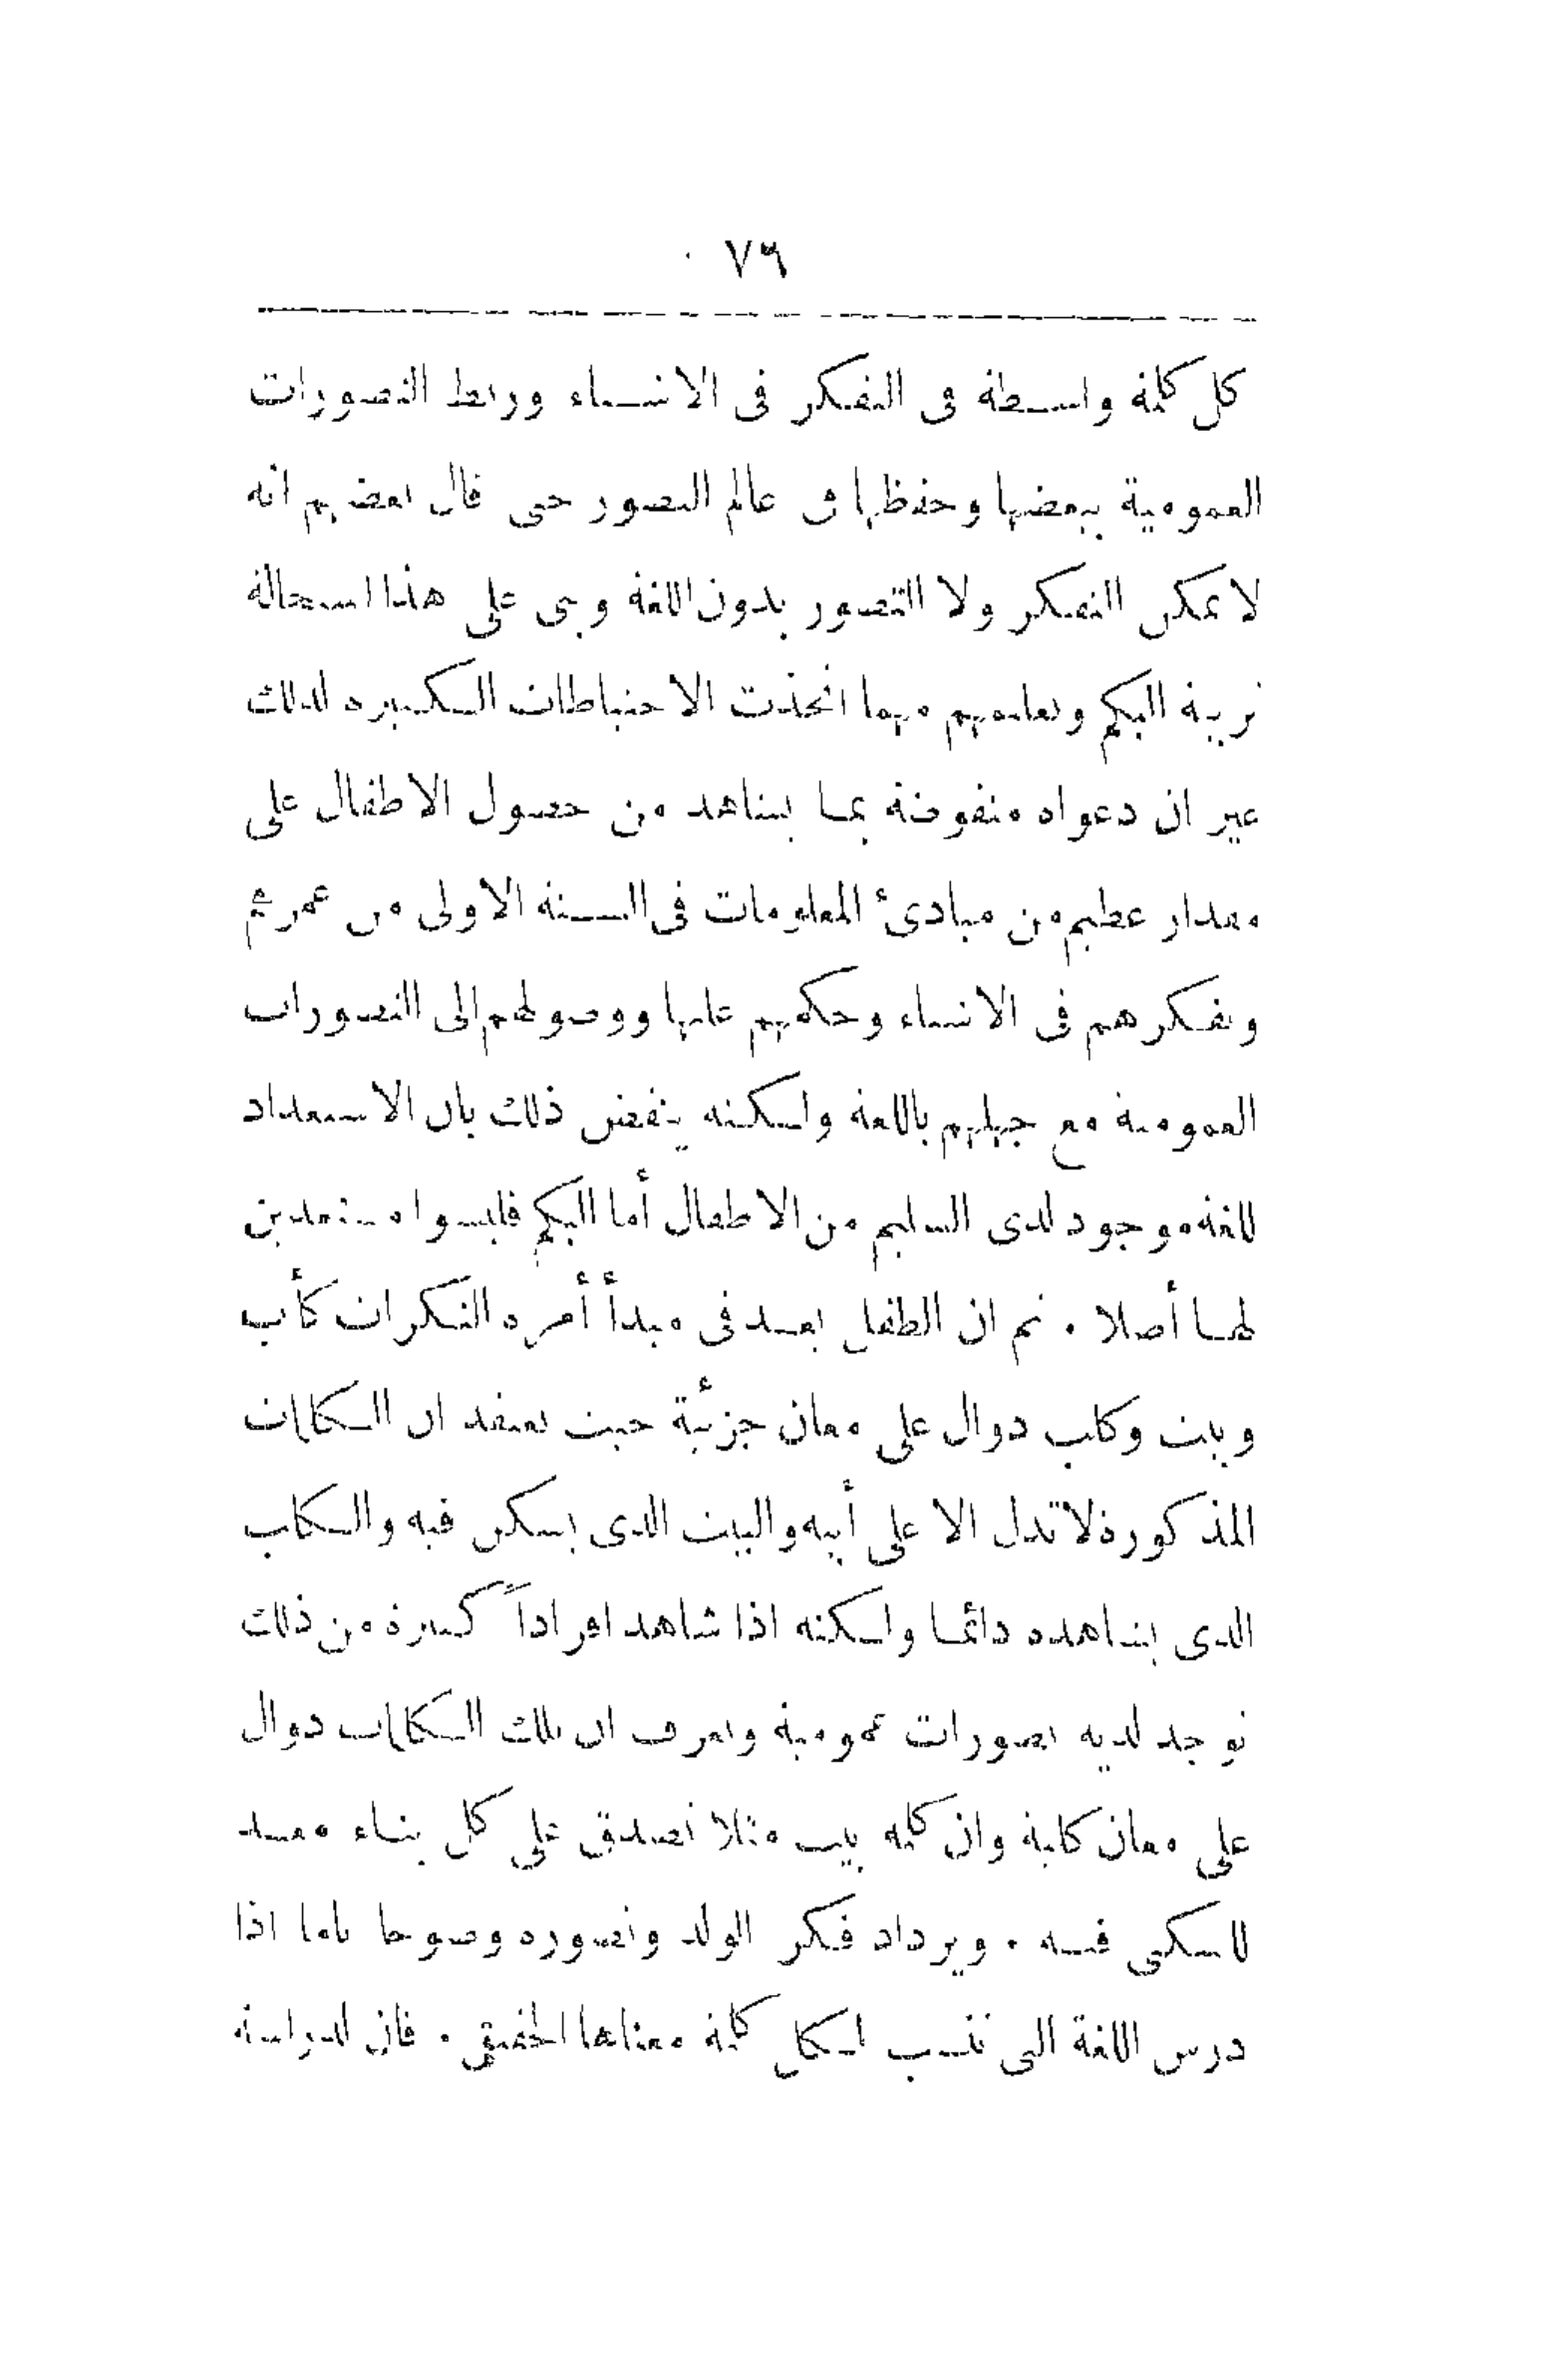 ٧٩
كل كلمة واسطة في التفكر في الاشياء وربط التصورات
العمومية ببعضها وحفظها في عالم التصور حتى قال بعضهم انه
لا يمكن التفكر ولا التصور بدون اللغة وبنى على هذا استحالة
تربية البكم وتعليمهم مهما اتخذت الاحتياطات الكبيرة لذلك
غير ان دعواه منقوضة بما يشاهد من حصول الاطفال على
مقدار عظيم من مبادئ المعلومات في السنة الاولى من عمرهم
وتفكرهم في الاشياء وحكمهم عليها ووصولهم إلى التصورات
العمومية مع جهلهم باللغة ولكنه ينقض ذلك بان الاستعداد
للغة موجود لدى السليم من الاطفال أما البكم فليسوا مستعدين
لها أصلا . ثم ان الطفل يعد في مبدأ أمره النكرات كأب
وبيت وكلب دوال على معان جزئية حيث يعتقد ان الكلمات
المذكورة لا تدل الا على أبيه والبيت الذى يسكن فيه والكلب
الذى يشاهده دائما ولكنه اذا شاهد افراداً كثيرة من ذلك
توجد لديه تصورات عمومية ويعرف ان تلك الكلمات دوال
على معان كلية وان كلمة بيت مثلا تصدق على كل بناء معد
للسكنى فيه . ويزداد فكر الولد وتصوره وضوحا تاما اذا
درس اللغة التى تنسب لكل كلمة معناها الحقيقي . فان لدراسة